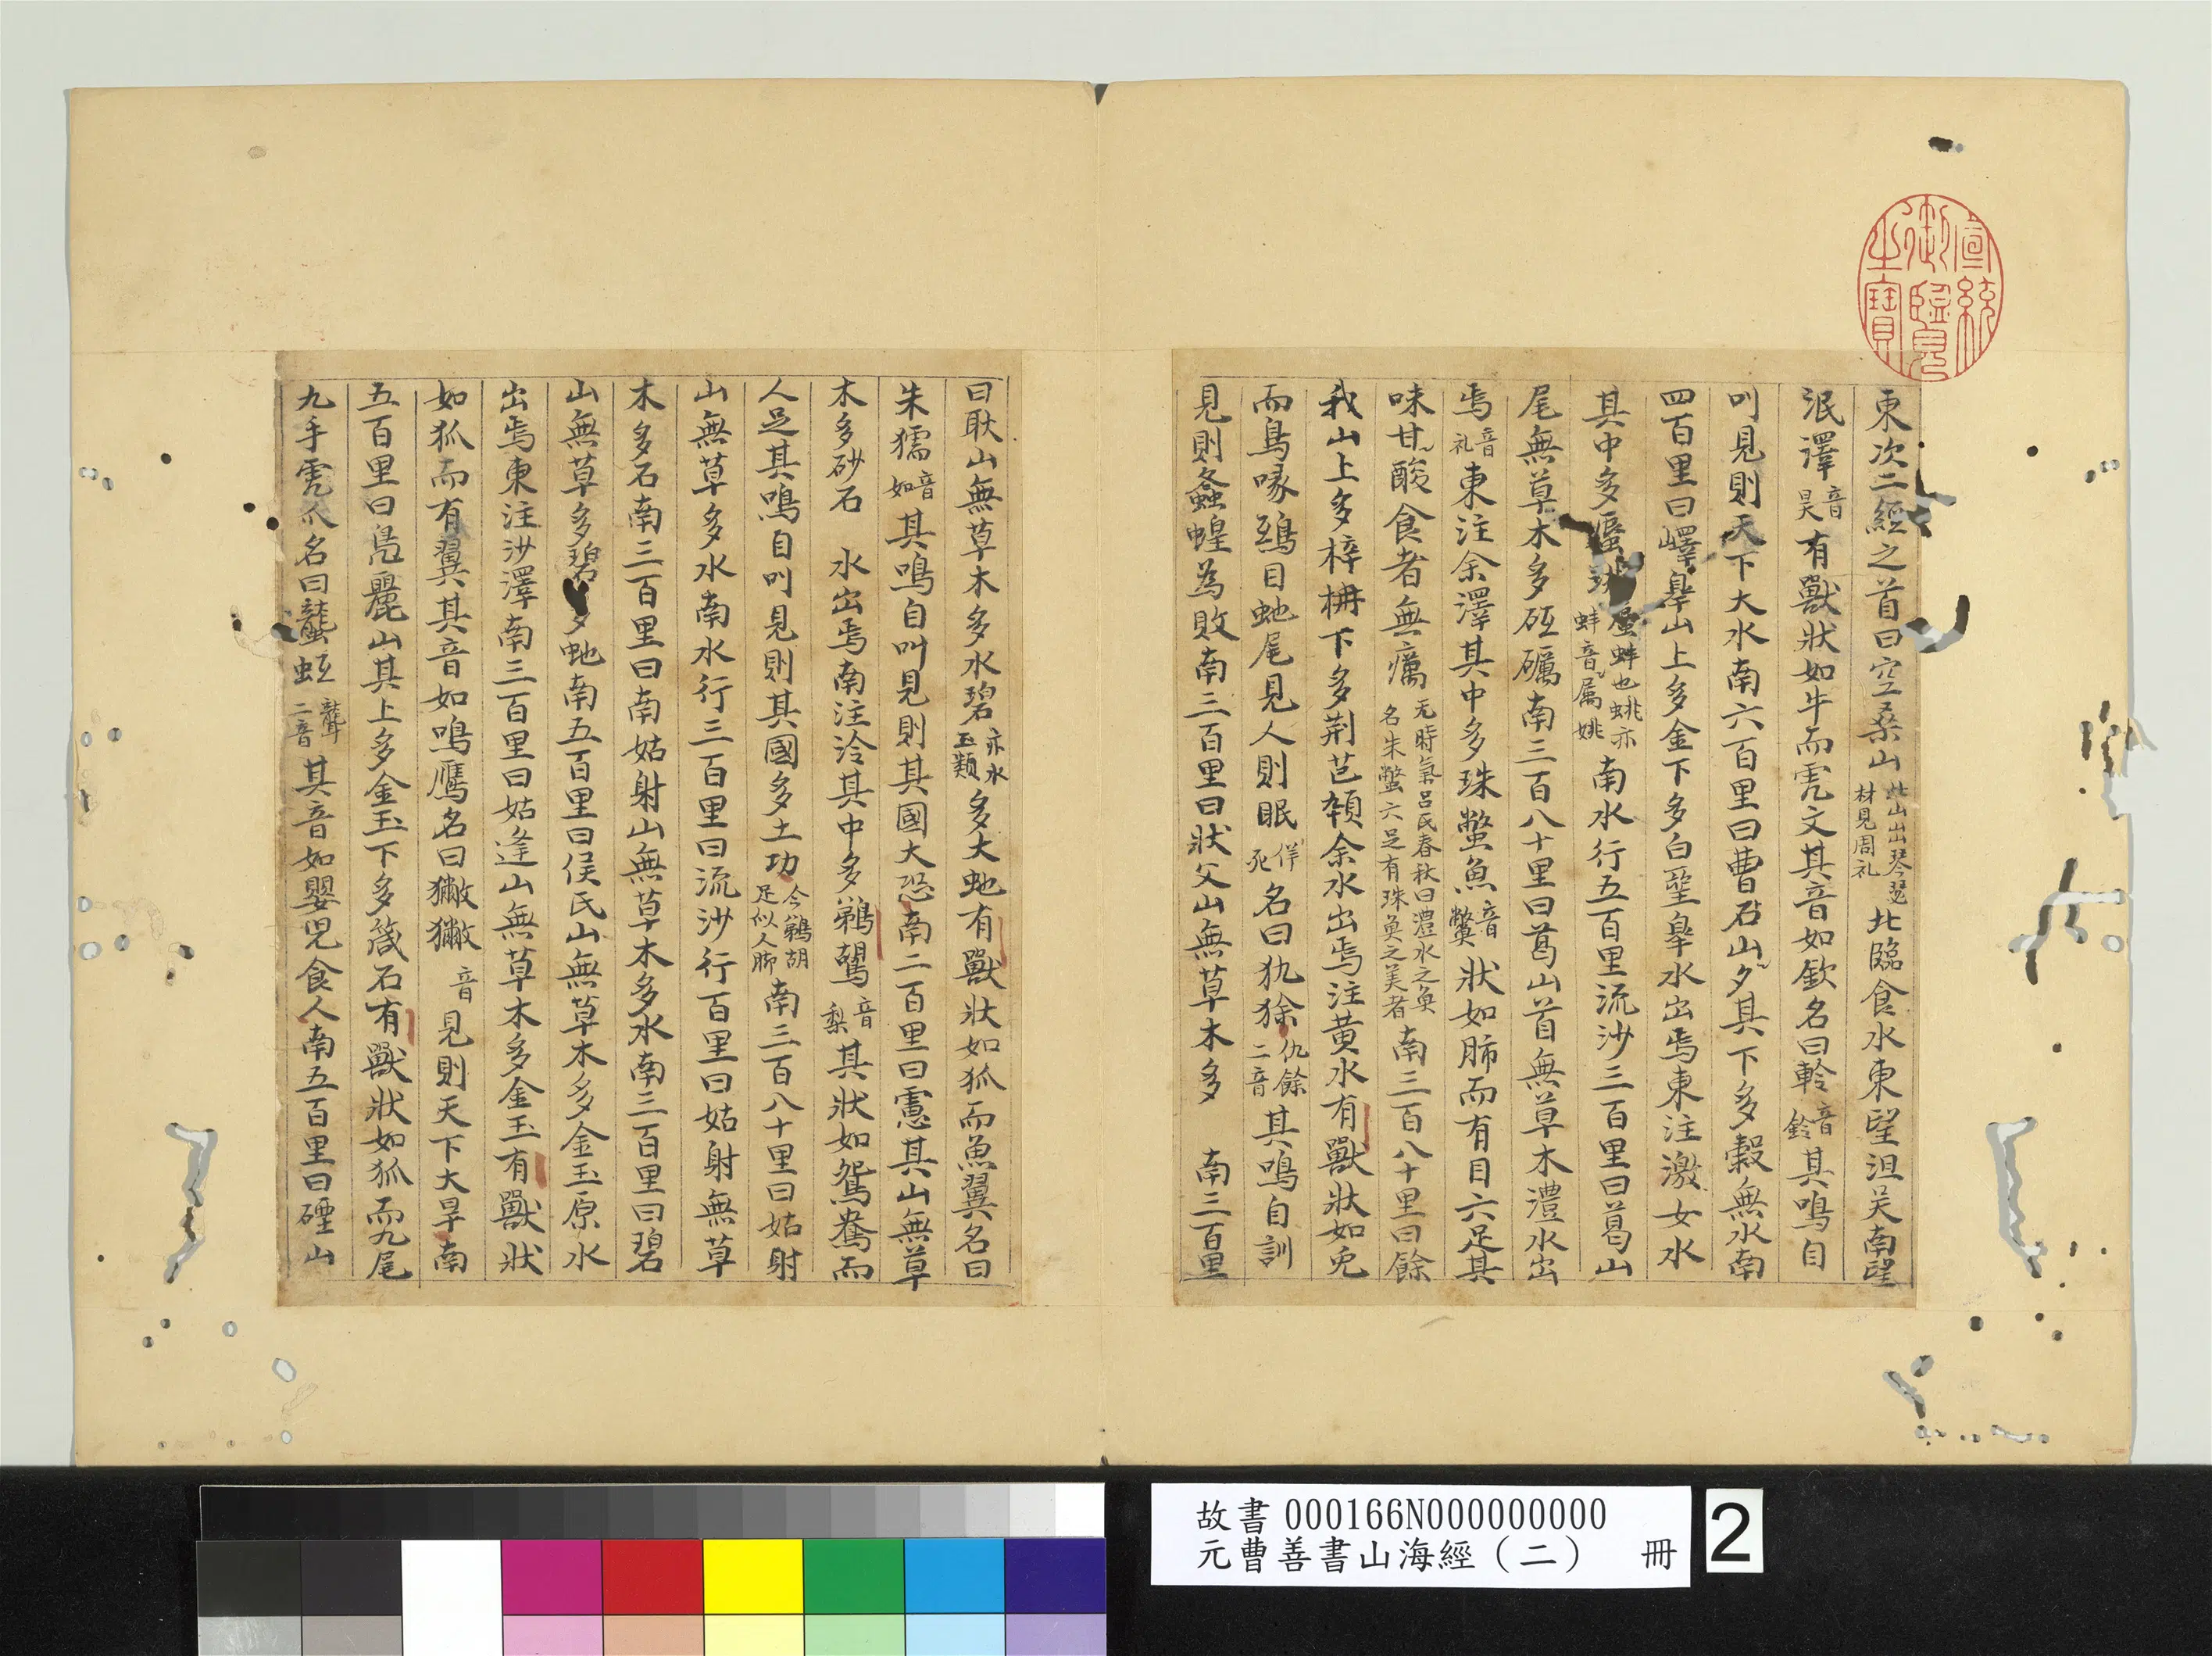 宣統御覽之寶
東次二經之首曰空桑山此山出琴瑟材見周礼北臨食水東望沮吴南望
泯澤音昊有獸狀如牛而虎文其音如欽名曰軨音鈴其鳴自
叫見則天下大水南六百里曰曹石山夕其下多穀無水南
四百里曰嶧皐山上多金下多白堊皐水出焉東注激女水
其中多蜃珧蜃蚌也珧亦蚌屬音姚南水行五百里流沙三百里曰葛山
尾無草木多砥礪南三百八十里曰葛山首無草木澧水出
焉音礼東注余澤其中多珠蟞魚音鱉狀如肺而有目六足其
味甘酸食者無癘无時氣呂氏春秋曰澧水之魚名朱蟞六足有珠魚之美者南三百八十里曰餘
我山上多梓枏下多荆芑雜余水出焉注黄水有獸狀如兎
而鳥喙鴟目虵尾見人則眠佯死名曰犰狳仇餘二音其鳴自訓
見則螽蝗為敗南三百里曰狀父山無草木多 南三百里
曰耿山無草木多水碧亦水玉類多大虵有獸狀如狐而魚翼名曰
朱獳音如其鳴自叫見則其國大恐南二百里曰盧其山無草
木多砂石 水出焉南注泠其中多鵜鶘音梨其狀如鴛鴦而
人足其鳴自叫見則其國多土功今鵜胡足似人脚南三百八十里曰姑射
山無草多水南水行三百里曰流沙行百里曰姑射無草
木多石南三百里曰南姑射山無草木多水南三百里曰碧
山無草多碧多虵南五百里曰侯氏山無草木多金玉原水
出焉東注沙澤南三百里曰姑逢山無草木多金玉有獸狀
如狐而有翼其音如鳴鴈名曰獙獙音見則天下大旱南
五百里曰鳧麗山其上多金玉下多箴石有獸狀如狐而九尾
九手虎爪名曰蠪蚳龍二音其音如嬰兒食人南五百里曰硾山
故書 000166N000000000
元曹善書山海經（二） 冊
2